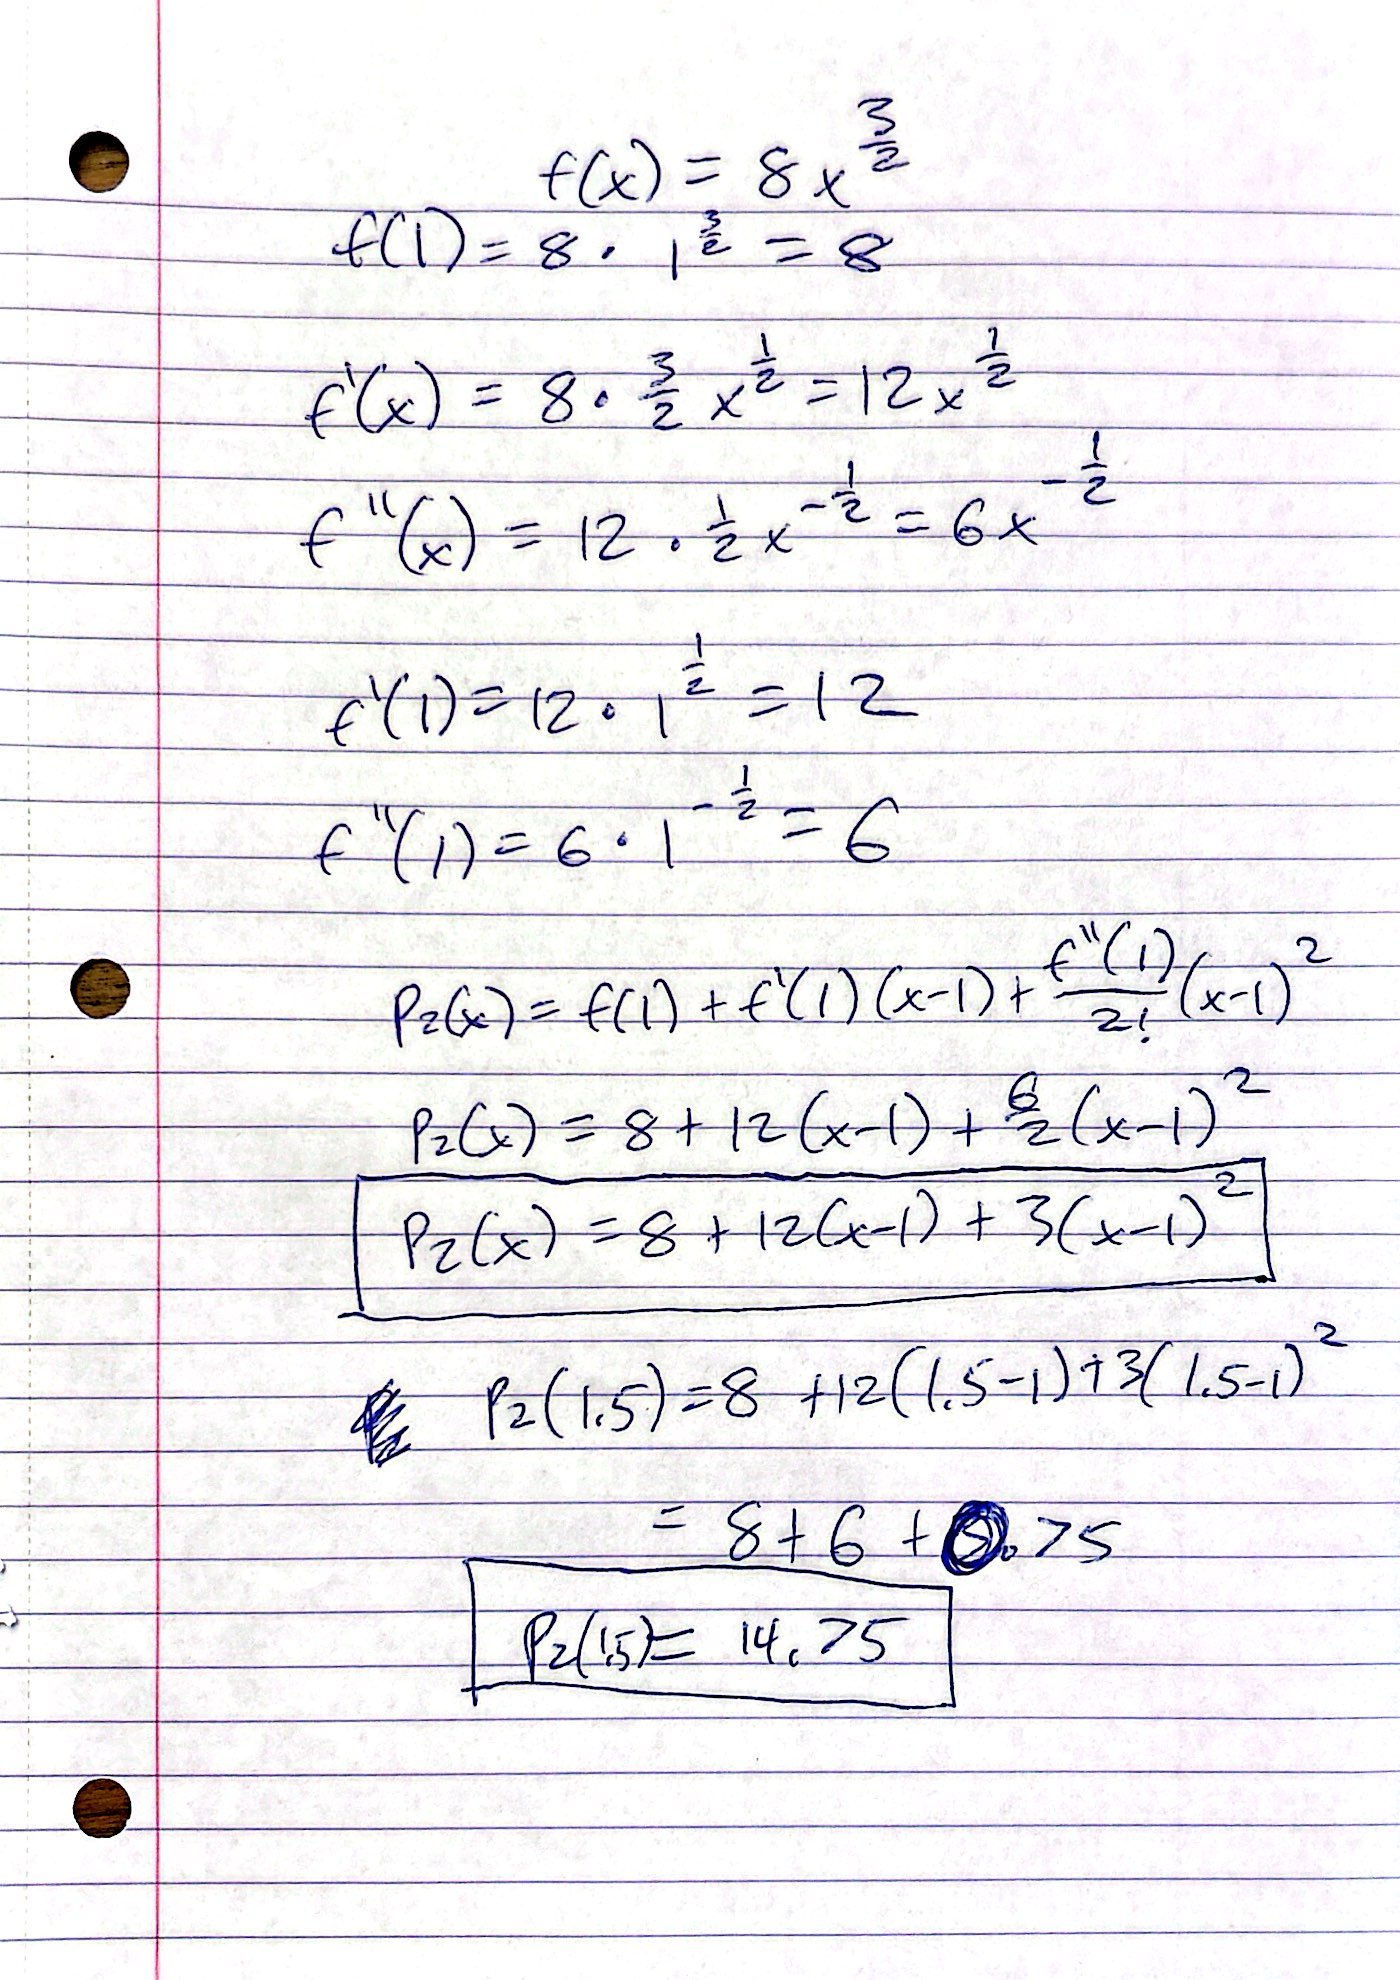 f(x) = 8x^{3/2}
f(1) = 8 · 1^{3/2} = 8
f'(x) = 8 · 3/2 x^{1/2} = 12x^{1/2}
f''(x) = 12 · 1/2 x^{-1/2} = 6x^{-1/2}
f'(1) = 12 · 1^{1/2} = 12
f''(1) = 6 · 1^{-1/2} = 6
P₂(x) = f(1) + f'(1)(x-1) + f''(1)/2! (x-1)²
P₂(x) = 8 + 12(x-1) + 6/2 (x-1)²
P₂(x) = 8 + 12(x-1) + 3(x-1)²
P₂(1.5) = 8 + 12(1.5-1) + 3(1.5-1)²
= 8 + 6 + 0.75
P₂(1.5) = 14.75